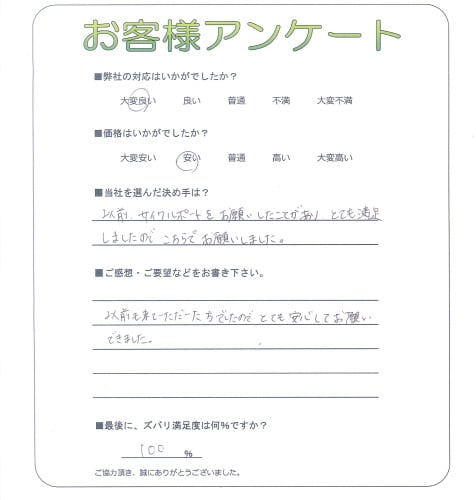 お客様アンケート
■弊社の対応はいかがでしたか？
大変良い 良い 普通 不満 大変不満
■価格はいかがでしたか？
大変安い 安い 普通 高い 大変高い
■当社を選んだ決め手は？
以前、サイクルポートをお願いしたことがあり、とても満足
しましたので こちらでお願いしました。
■ご感想・ご要望などをお書き下さい。
以前も来ていただいた方でしたので とても安心してお願い
できました。
■最後に、ズバリ満足度は何％ですか？
100 ％
ご協力頂き、誠にありがとうございました。